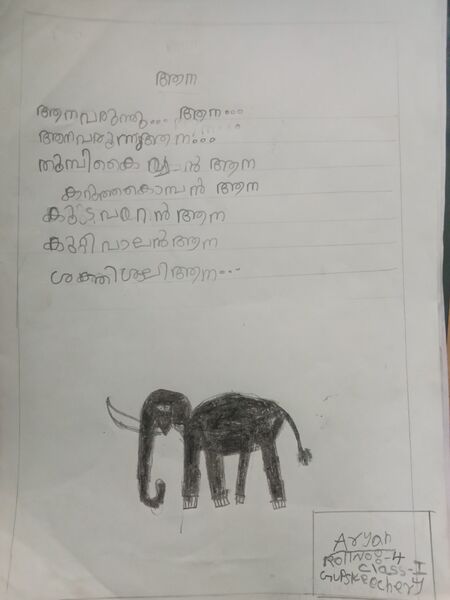 ആന
ആനവരുന്നു... ആന...
ആനവരുന്നുആന...
തുമ്പികൈ ആന
കറുത്തകൊമ്പൻ ആന
ആന
കുറിവാലൻആന
ശക്തിശലിആന...
Aryan
Roll No:-4
Class-I
GUPSKeechery